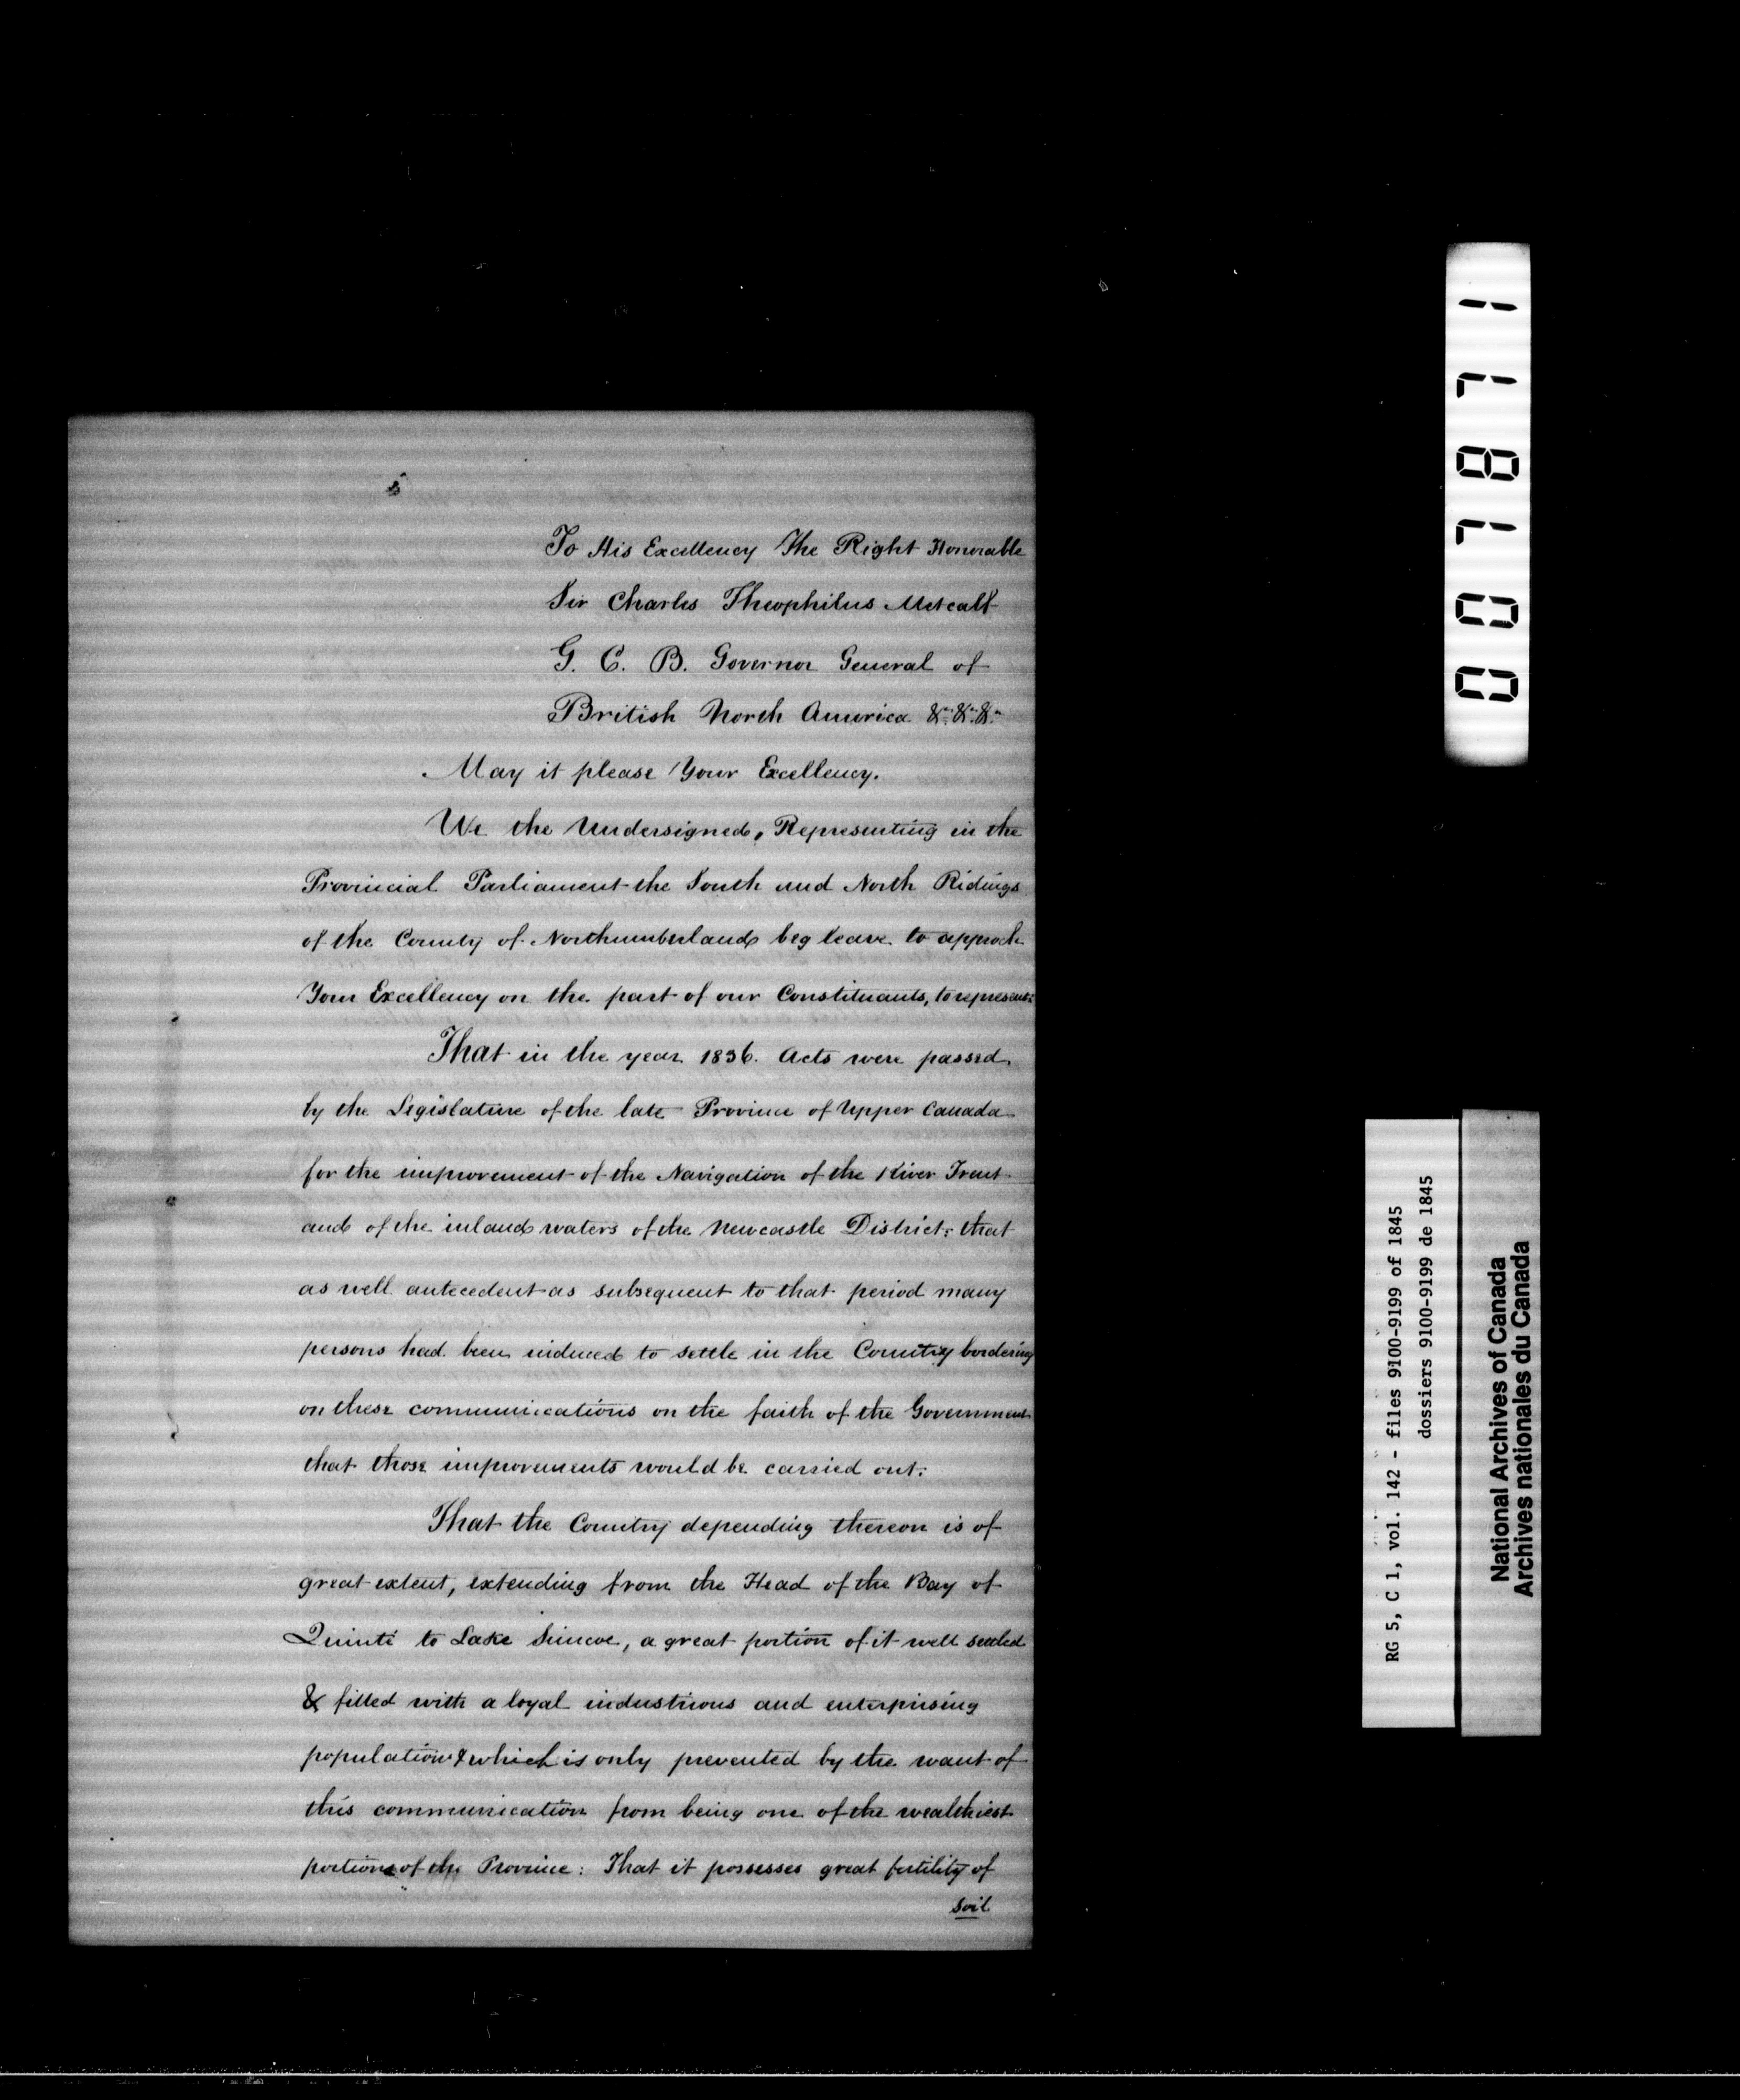 To His Excellency The Right Honorable
Sir Charles Theophilus Metcalf
G. C. B. Governor General of
British North America &c. &c. &c.
May it please Your Excellency.
We the Undersigned, Representing in the
Provincial Parliament the South and North Ridings
of the County of Northumberland beg leave to approch
Your Excellency on the part of our Constituants, to represent:
That in the year 1836. Acts were passed,
by the Legislature of the late Province of Upper Canada
for the improvement of the Navigation of the River Trent
and of the inland waters of the Newcastle District: that
as well antecedent as subsequent to that period many
persons had been induced to settle in the Country bordering
on these communications on the faith of the Government
that those improvements would be carried out:
That the Country depending thereon is of
great extent, extending from the Head of the Bay of
Quinté to Lake Simcoe, a great portion of it well settled
& filled with a loyal industrious and enterprising
population & which is only prevented by the want of
this communication from being one of the wealthiest
portions of the Province: That it possesses great fertility of
soil
007871
RG 5, C 1, vol. 142 - files 9100-9199 of 1845
dossiers 9100-9199 de 1845
National Archives of Canada
Archives nationales du Canada